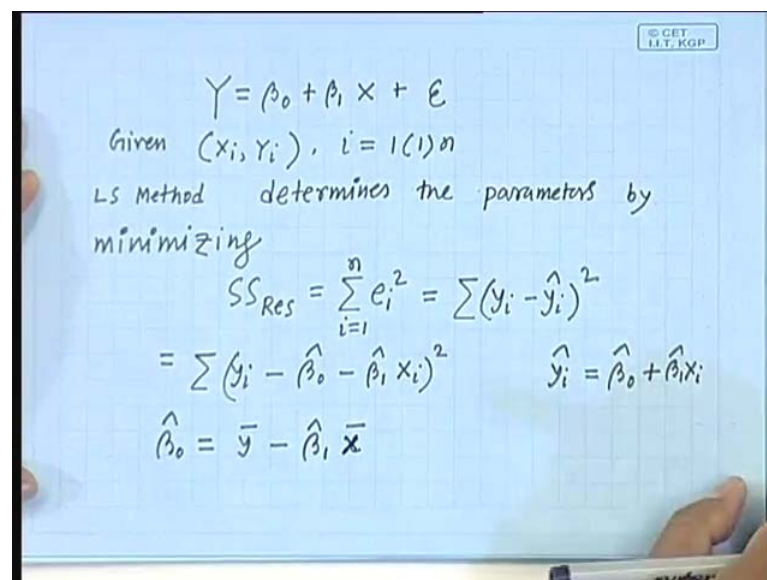 © CET
I.I.T, KGP
Y = β₀ + β₁ X + ε
Given (Xi, Yi), i = 1(1)n
LS Method determines the parameters by
minimizing
SS_Res = Σ_{i=1}^{n} e_i² = Σ(y_i - ŷ_i)²
= Σ(y_i - β̂₀ - β̂₁ x_i)² ŷ_i = β̂₀ + β̂₁x_i
β̂₀ = ȳ - β̂₁ x̄